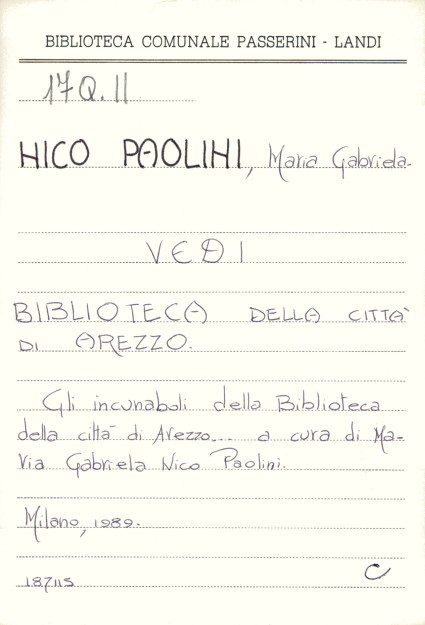 BIBLIOTECA COMUNALE PASSERINI - LANDI
17Q.II
NICO PAOLINI, Maria Gabriela.
VEDI
BIBLIOTECA DELLA CITTA'
DI AREZZO.
Gli incunaboli della Biblioteca
della città di Arezzo... a cura di Ma-
ria Gabriela Nico Paolini.
Milano, 1989.
187115
C